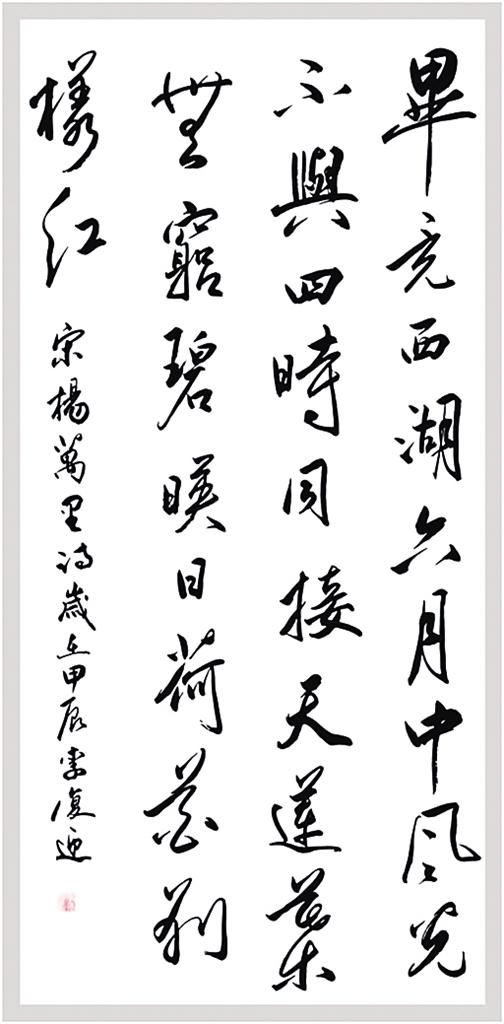 畢竟西湖六月中風光
不與四時同接天蓮葉
無窮碧暎日荷花別
樣紅
宋楊萬里詩歲在甲辰復